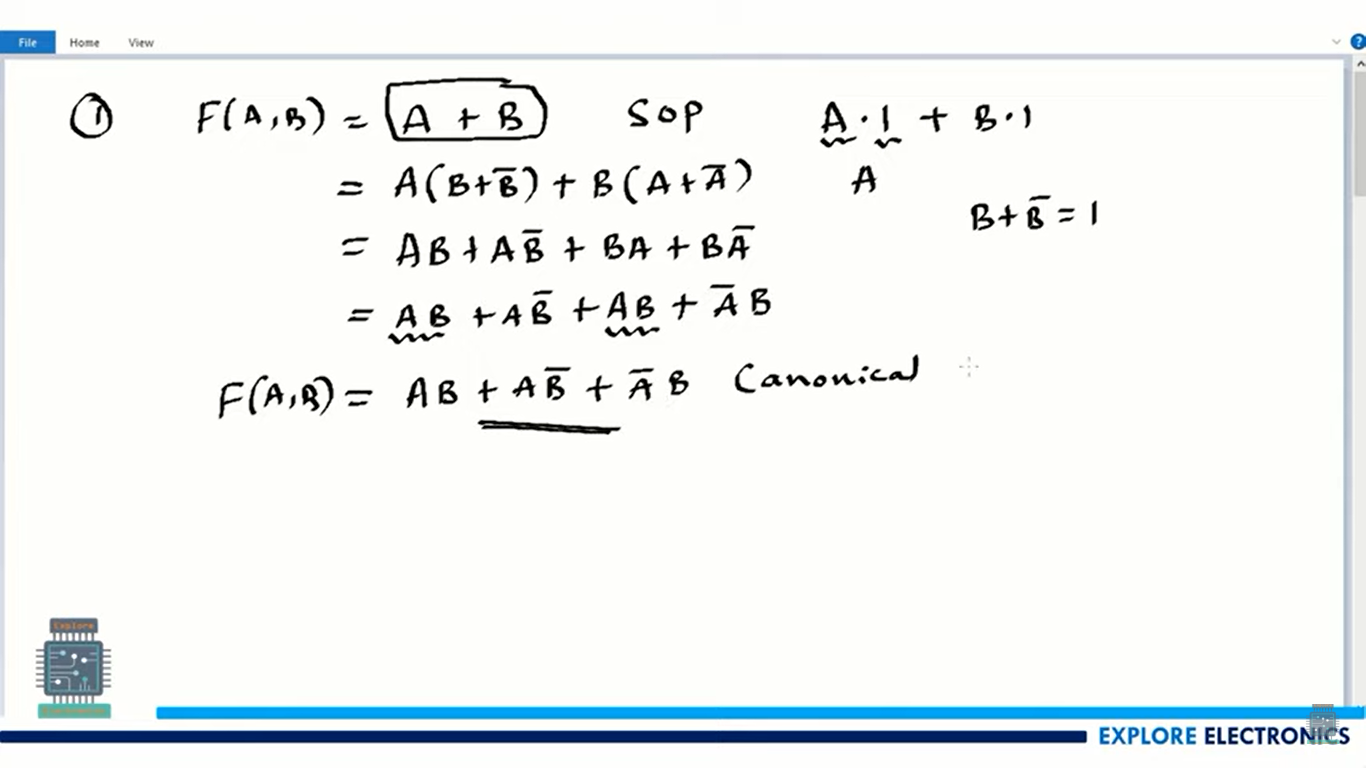 File Home View
① F(A,B) = A + B SOP A·1 + B·1
= A(B+B̅) + B(A+A̅) A
B+B̅=1
= AB+AB̅ + BA + BA̅
= AB +AB̅ +AB + A̅B
F(A,B) = AB +AB̅ + A̅B Canonical
Explore
EXPLORE ELECTRONICS